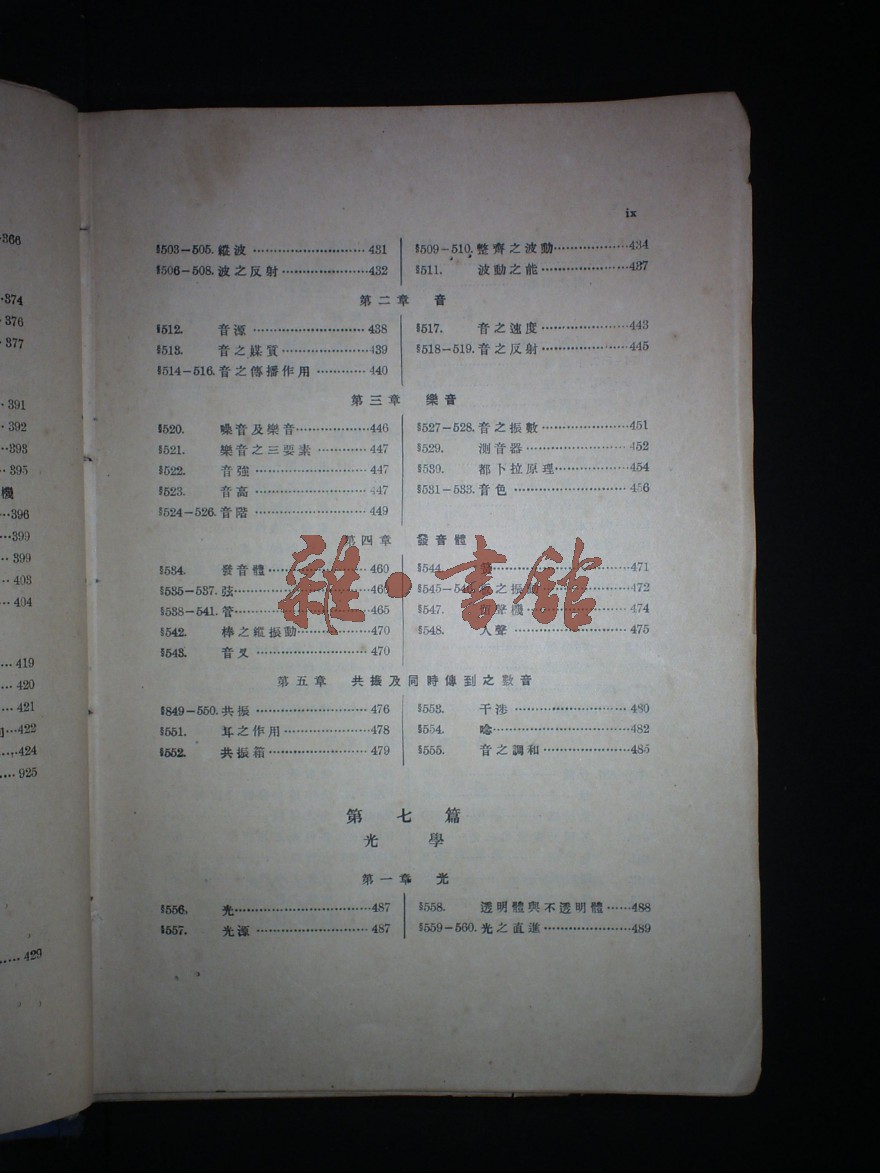 ix
§503-505. 縱波 431
§506-508. 波之反射 432
§509-510. 整齊之波動 434
§511. 波動之能 437
第二章 音
§512. 音源 438
§513. 音之媒質 439
§514-516. 音之傳播作用 440
§517. 音之速度 443
§518-519. 音之反射 445
第三章 樂音
§520. 噪音及樂音 446
§521. 樂音之三要素 447
§522. 音強 447
§523. 音高 447
§524-526. 音階 449
§527-528. 音之振數 451
§529. 測音器 452
§530. 都卜拉原理 454
§531-533. 音色 456
第四章 發音體
§534. 發音體 460
§535-537. 弦
§538-541. 管 465
§542. 棒之縱振動 470
§543. 音叉 470
§544. 471
§545-546. 之振動 472
§547. 聲機 474
§548. 人聲 475
第五章 共振及同時傳到之數音
§849-550. 共振 476
§551. 耳之作用 478
§552. 共振箱 479
§553. 干涉 480
§554. 唸 482
§555. 音之調和 485
第七篇
光學
第一章 光
§556. 光 487
§557. 光源 487
§558. 透明體與不透明體 488
§559-560. 光之直進 489
366
374
376
377
391
392
393
395
機
396
399
399
403
404
419
420
421
422
424
925
429
雜·書館